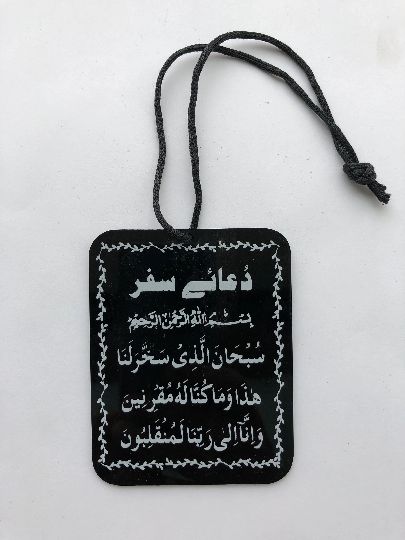 دُعائے سفر
بِسْمِ اللهِ الرَّحْمٰنِ الرَّحِيْمِ
سُبْحَانَ الَّذِىْ سَخَّرَلَنَا
هٰذَا وَمَاكُنَّالَهُ مُقْرِنِيْنَ
وَاِنَّآاِلٰى رَبِّنَالَمُنْقَلِبُونَ